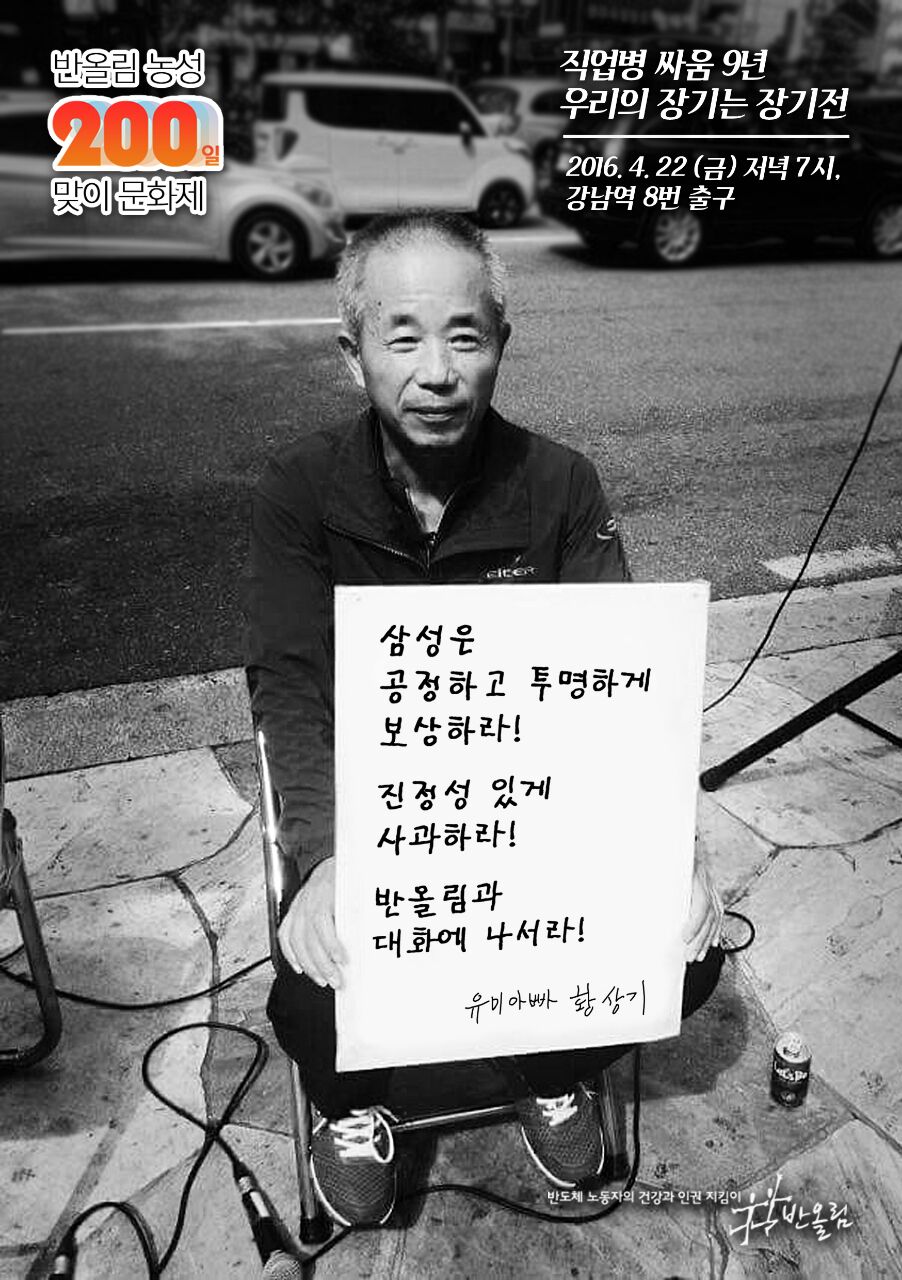 반올림 농성
200일
맞이 문화제
직업병 싸움 9년
우리의 장기는 장기전
2016. 4. 22 (금) 저녁 7시,
강남역 8번 출구
EIDER
삼성은
공정하고 투명하게
보상하라!
진정성 있게
사과하라!
반올림과
대화에 나서라!
유미아빠 황상기
Let's Be
반도체 노동자의 건강과 인권 지킴이
반올림